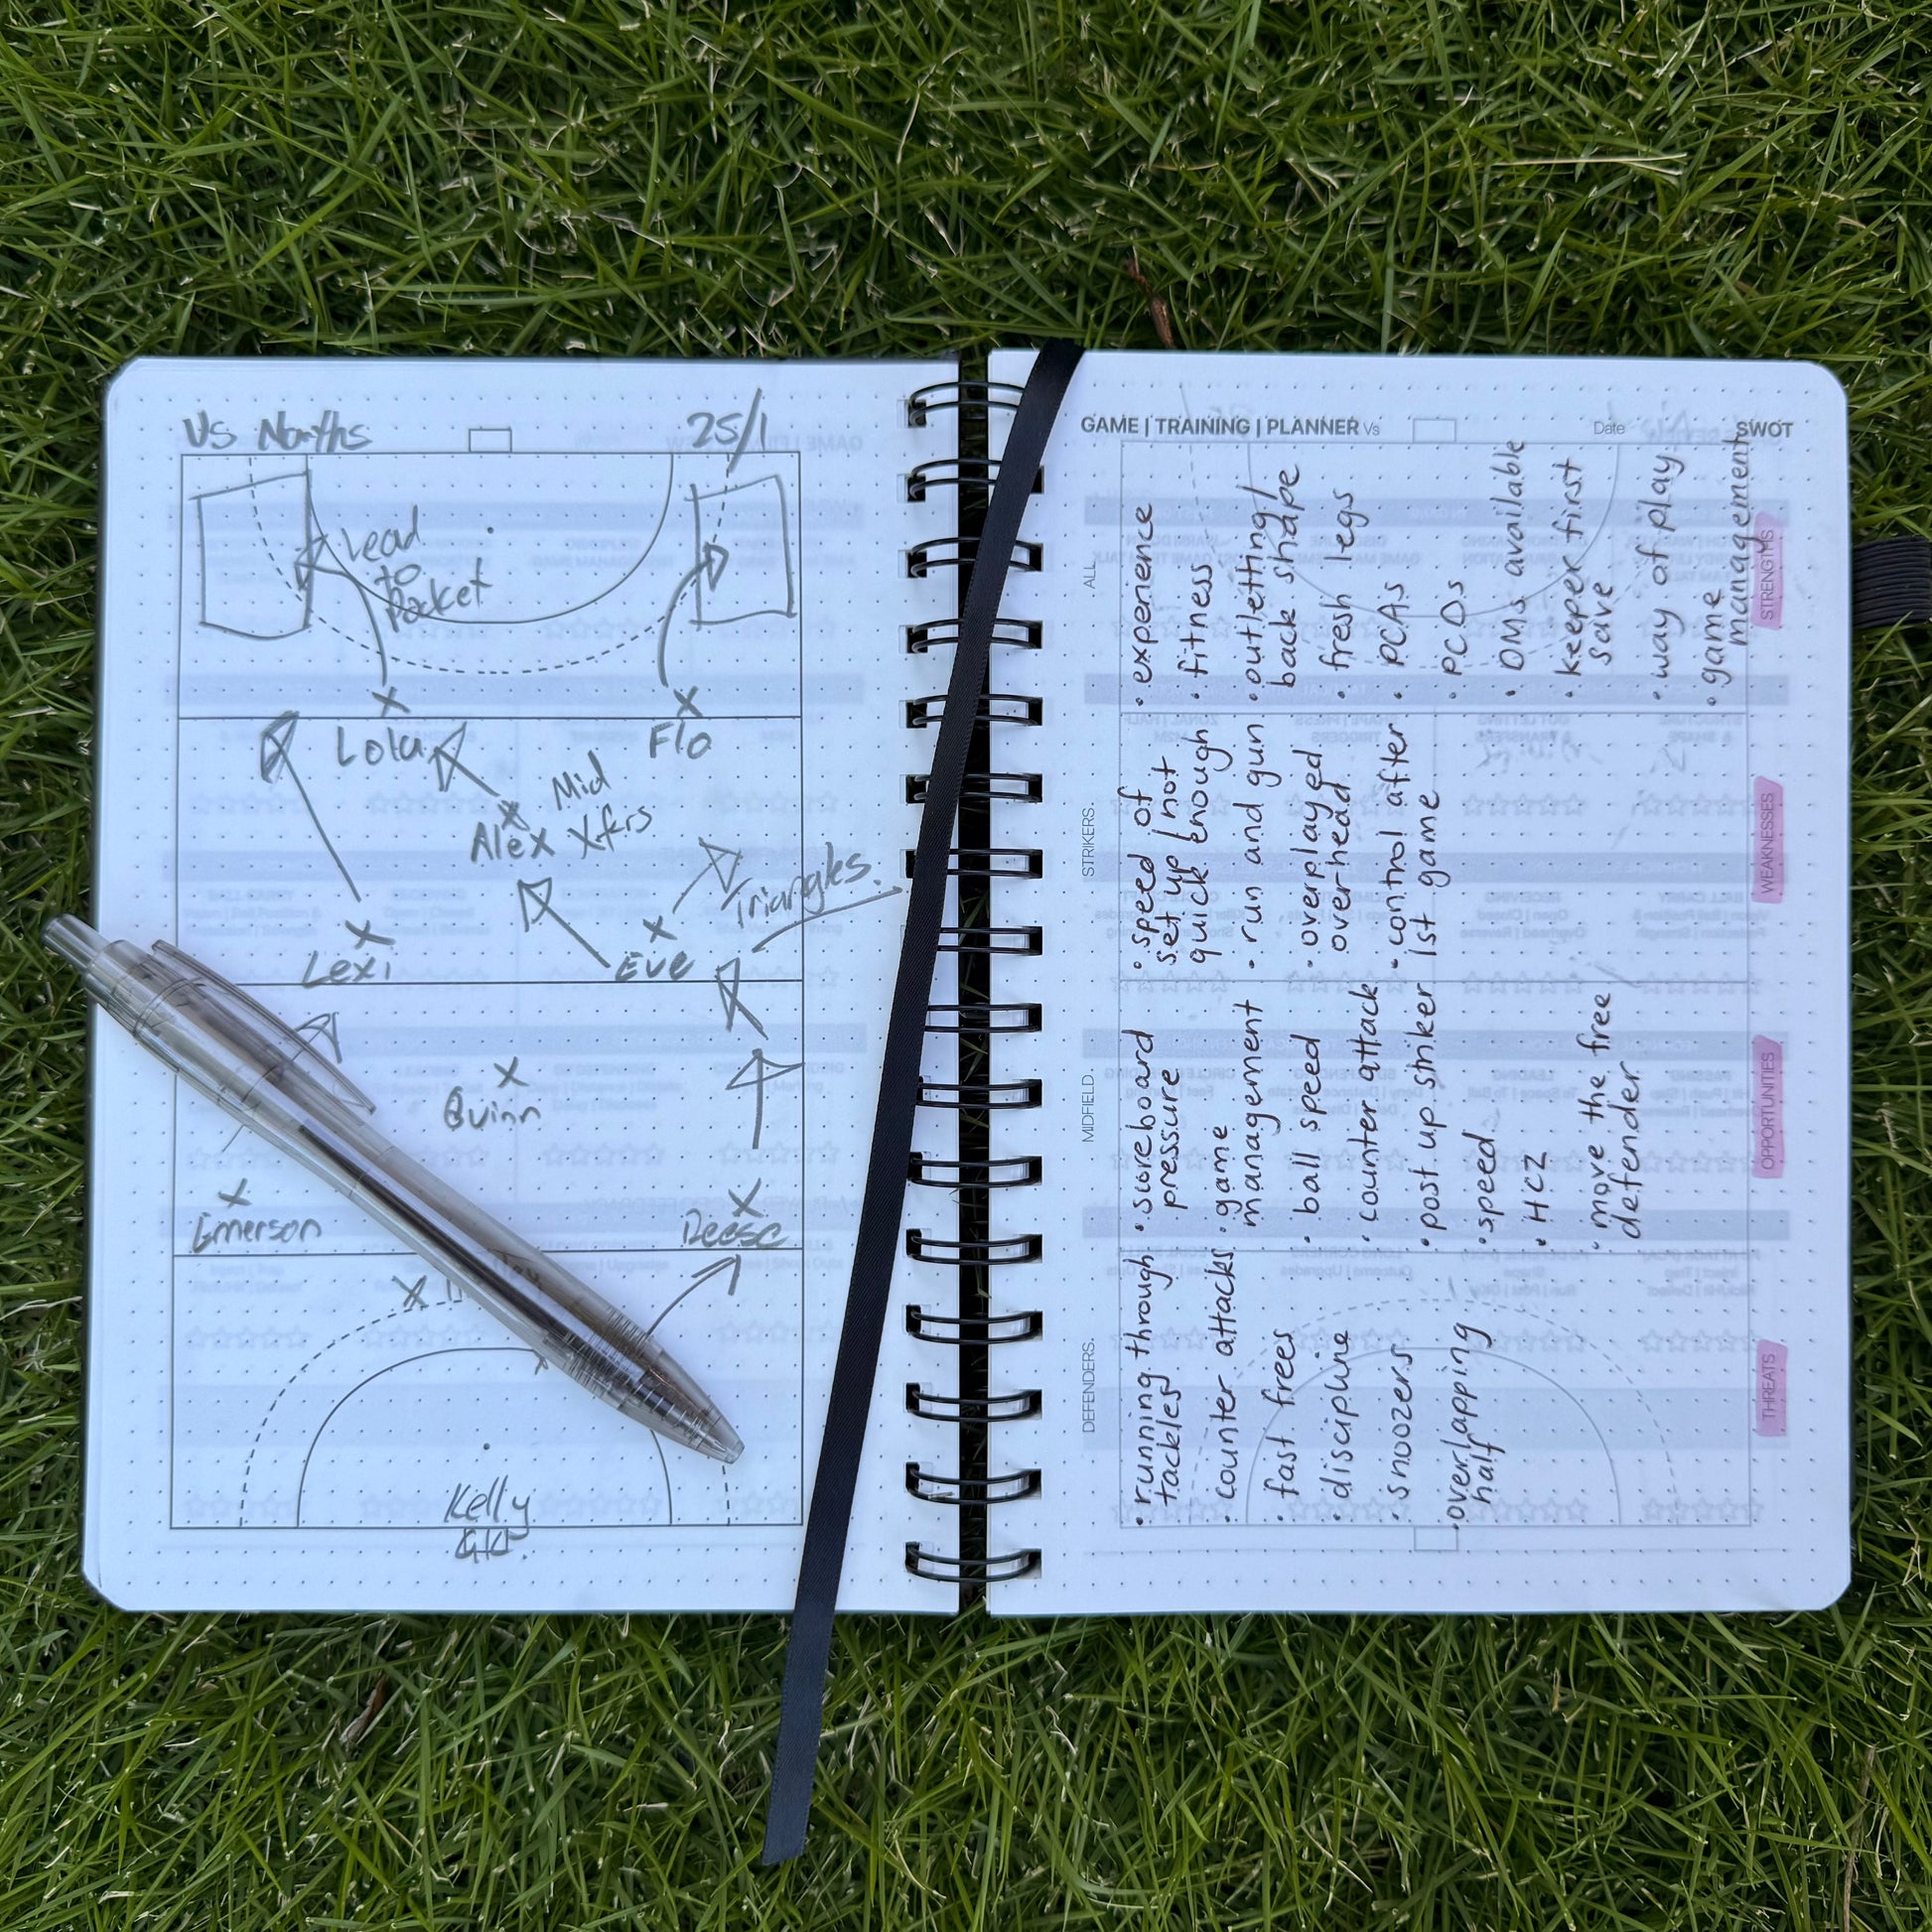 Vs Norths
25/1
Lead
to
Pocket
Lola
Flo
Mid
Alex Xfrs
Triangles.
Lexi
Eve
Quinn
Emerson
Reese
Kelly
GK
GAME | TRAINING | PLANNER Vs
Date
SWOT
ALL.
STRIKERS.
MIDFIELD.
DEFENDERS.
STRENGTHS
• experience
• fitness
• outletting/
back shape
• fresh legs
• PCAs
• PCDs
• DMs available
• keeper first
save
• way of play
• game
management
WEAKNESSES
• speed of
set up/not
quick enough
• run and gun
• overplayed
overhead
• control after
1st game
OPPORTUNITIES
• scoreboard
pressure
• game
management
• ball speed
• counter attack
• post up striker
• speed
• HCZ
• move the free
defender
THREATS
• running through
tackles
• counter attacks
• fast frees
• discipline
• snoozers
• overlapping
half